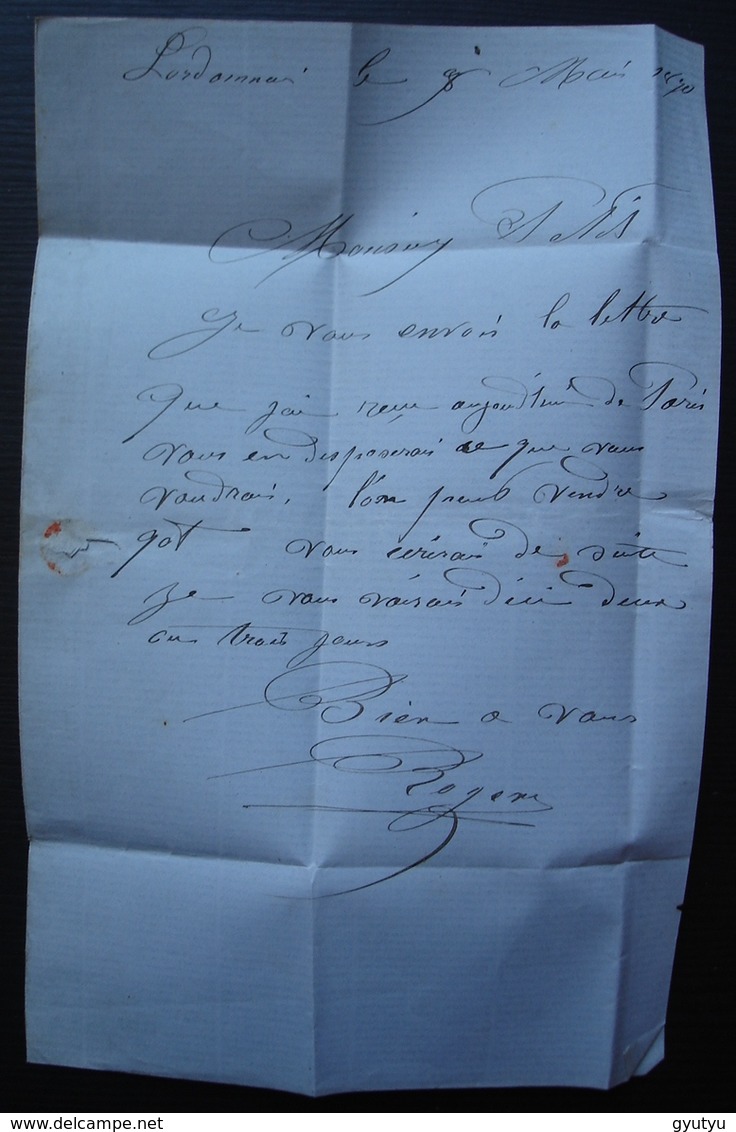 Lordonnois le 8 Mai 1870
Monsieur Petit
Je vous envois la lettre
que jai recu aujourdhui de Paris
vous en disposerais ce que vous
voudrais, l'on peut vendre
got vous ecrirais de suite
Je vous voirais dici deux
ou trois jours
Bien a vous
Rogere
delcampe.net
gyutyu